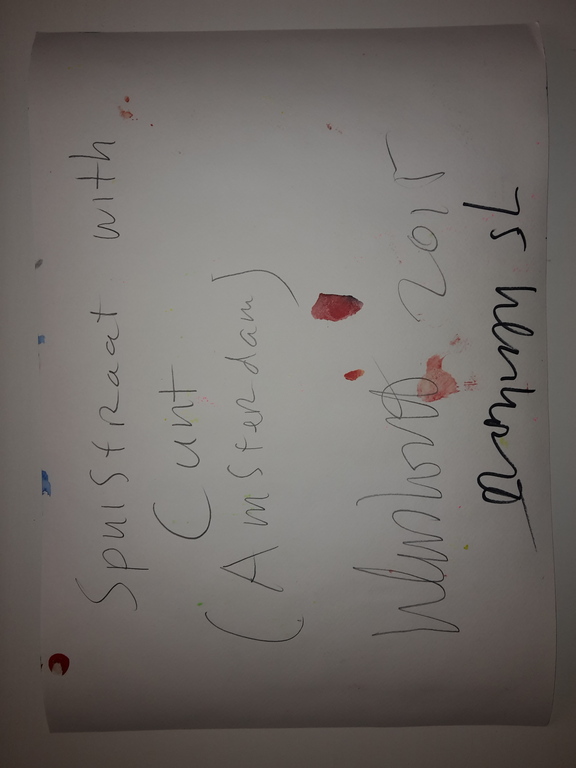 Spuistraat with
Cunt
(Amsterdam)
2015
75